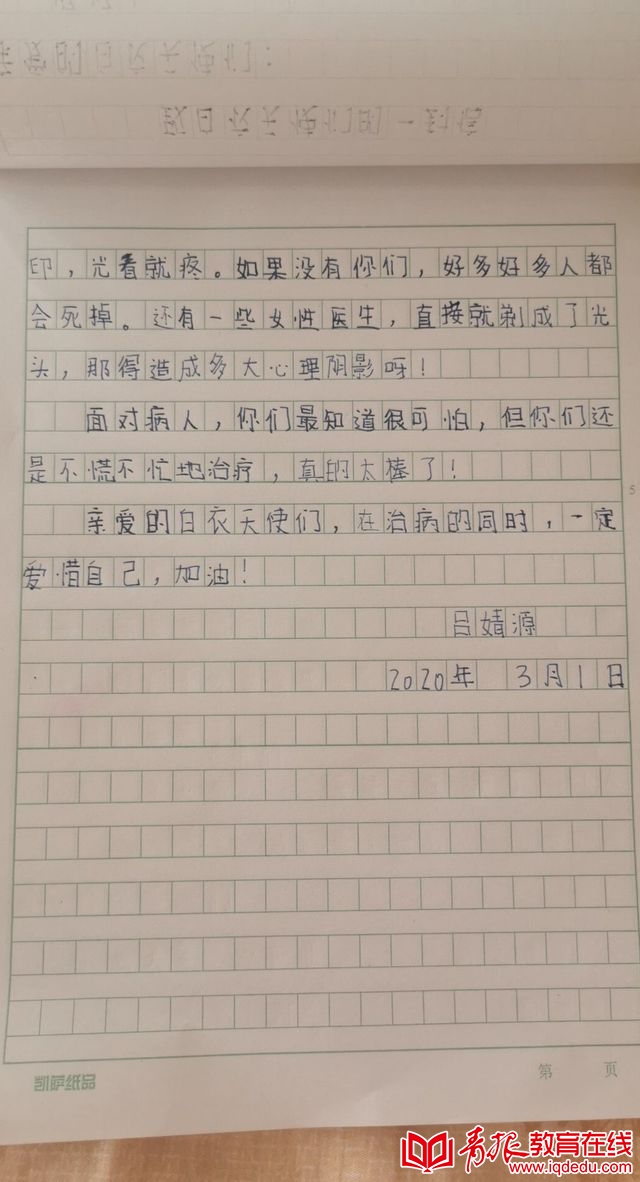 亲爱的白衣天使们：
致白衣天使们的一封信
印，光看就疼。如果没有你们，好多好多人都
会死掉。还有一些女性医生，直接就剃成了光
头，那得造成多大心理阴影呀！
面对病人，你们最知道很可怕，但你们还
是不慌不忙地治疗，真的太棒了！
亲爱的白衣天使们，在治病的同时，一定
爱惜自己，加油！
吕婧源
2020年 3月1日
5
凯萨纸品
第 页
青报教育在线
www.iqdedu.com